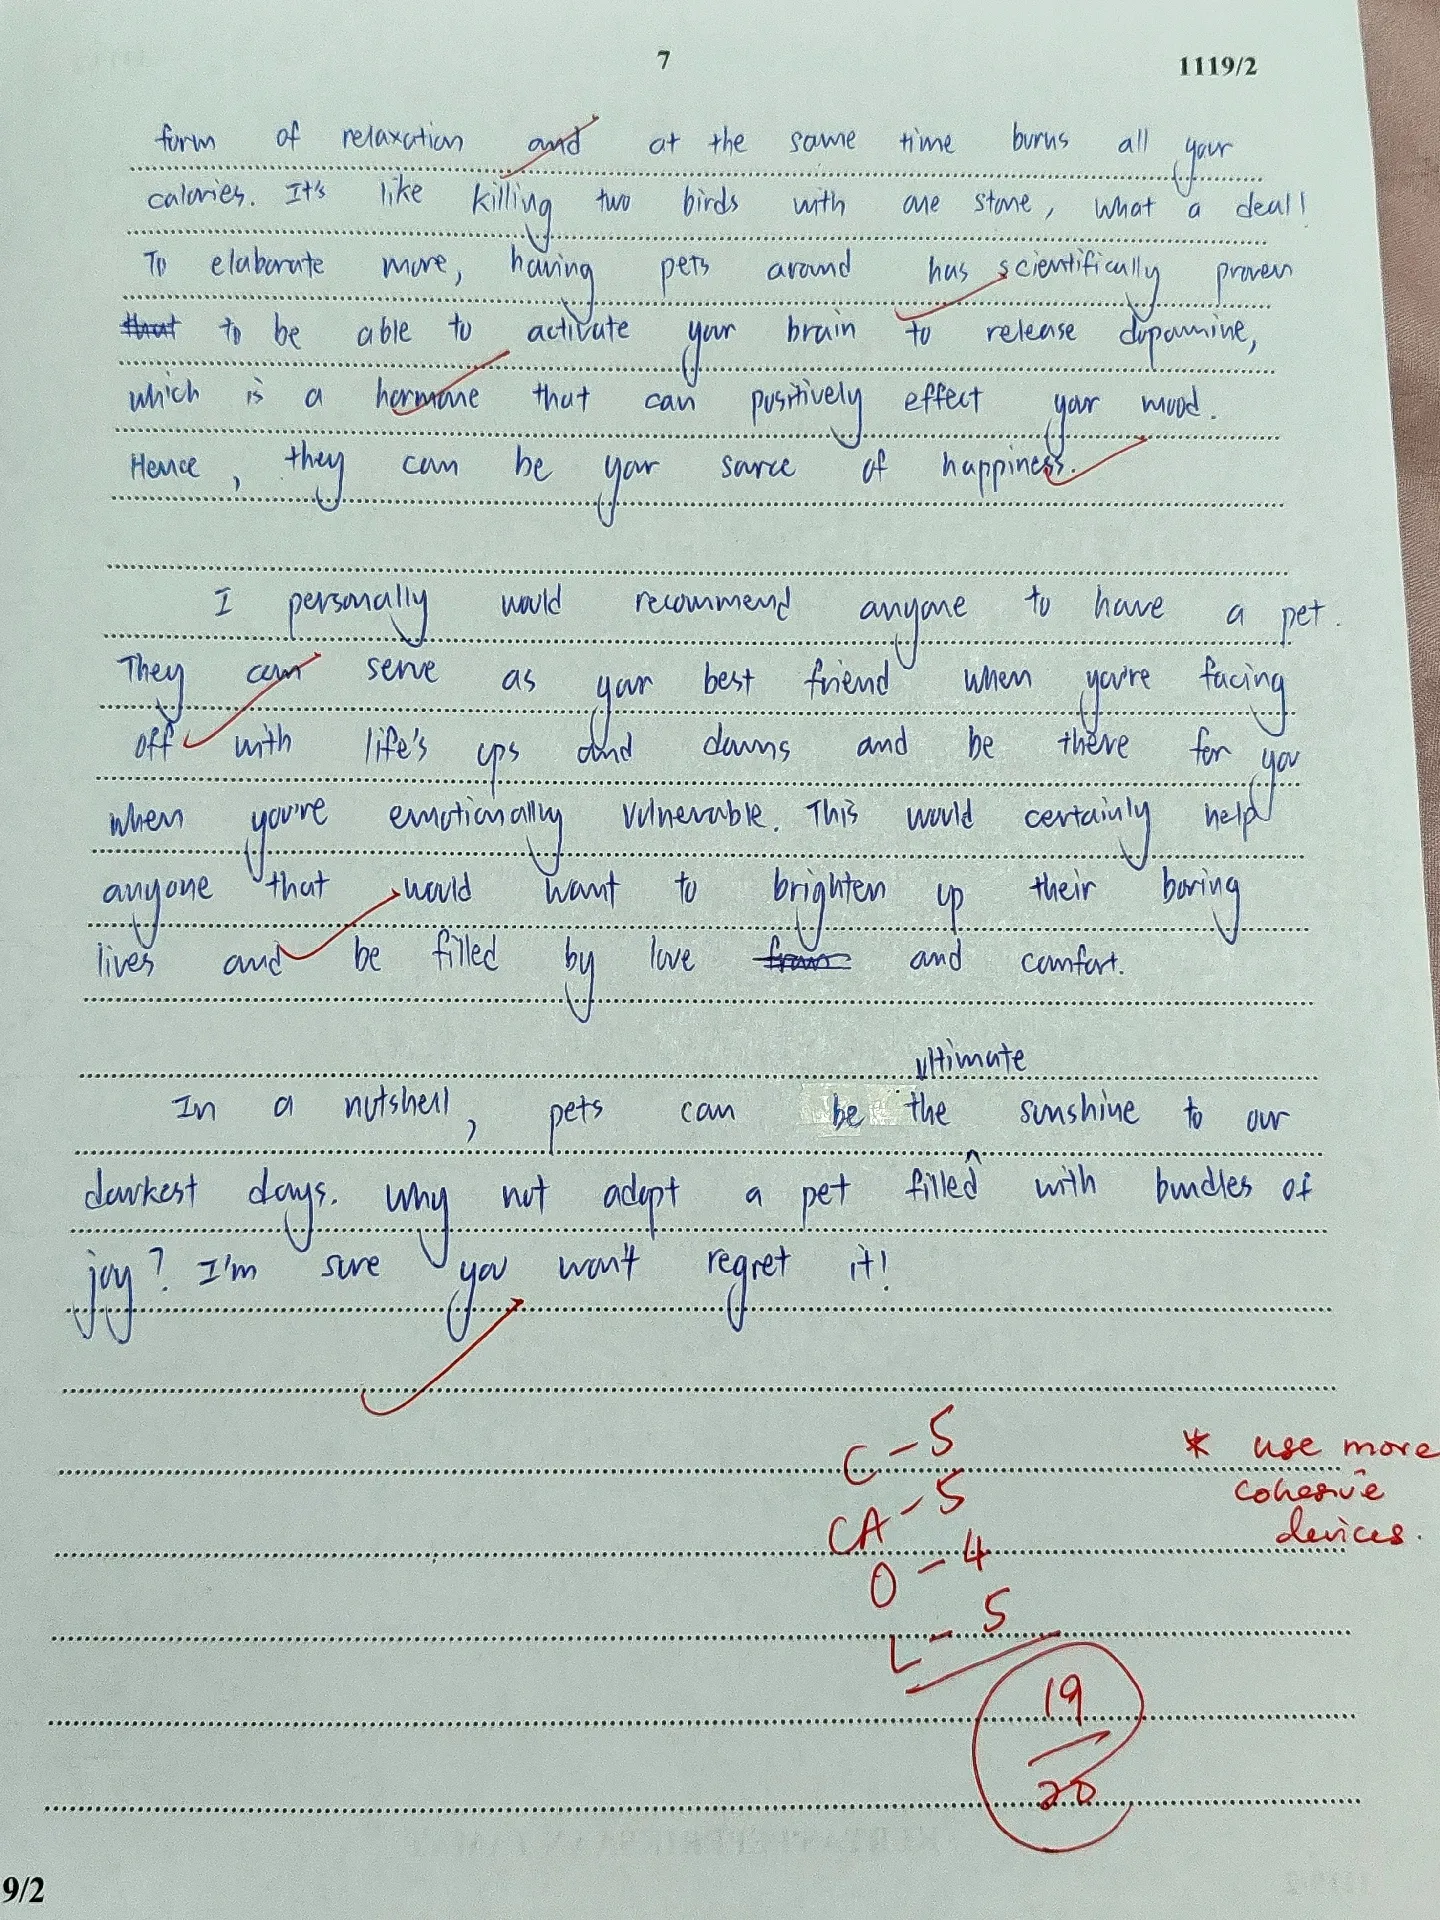 7
1119/2
form of relaxation and at the same time burns all your
calories. It's like killing two birds with one stone, what a deal!
To elaborate more, having pets around has scientifically proven
that to be able to activate your brain to release dopamine,
which is a hormone that can positively effect your mood.
Hence, they can be your source of happiness.
I personally would recommend anyone to have a pet.
They can serve as your best friend when you're facing
off with life's ups and downs and be there for you
when you're emotionally vulnerable. This would certainly help
anyone that would want to brighten up their boring
lives and be filled by love from and comfort.
ultimate
In a nutshell, pets can be the sunshine to our
darkest days. Why not adopt a pet filled with bundles of
joy? I'm sure you won't regret it!
C - 5
* use more
cohesive
CA - 5
devices.
O - 4
L - 5
19
20
9/2